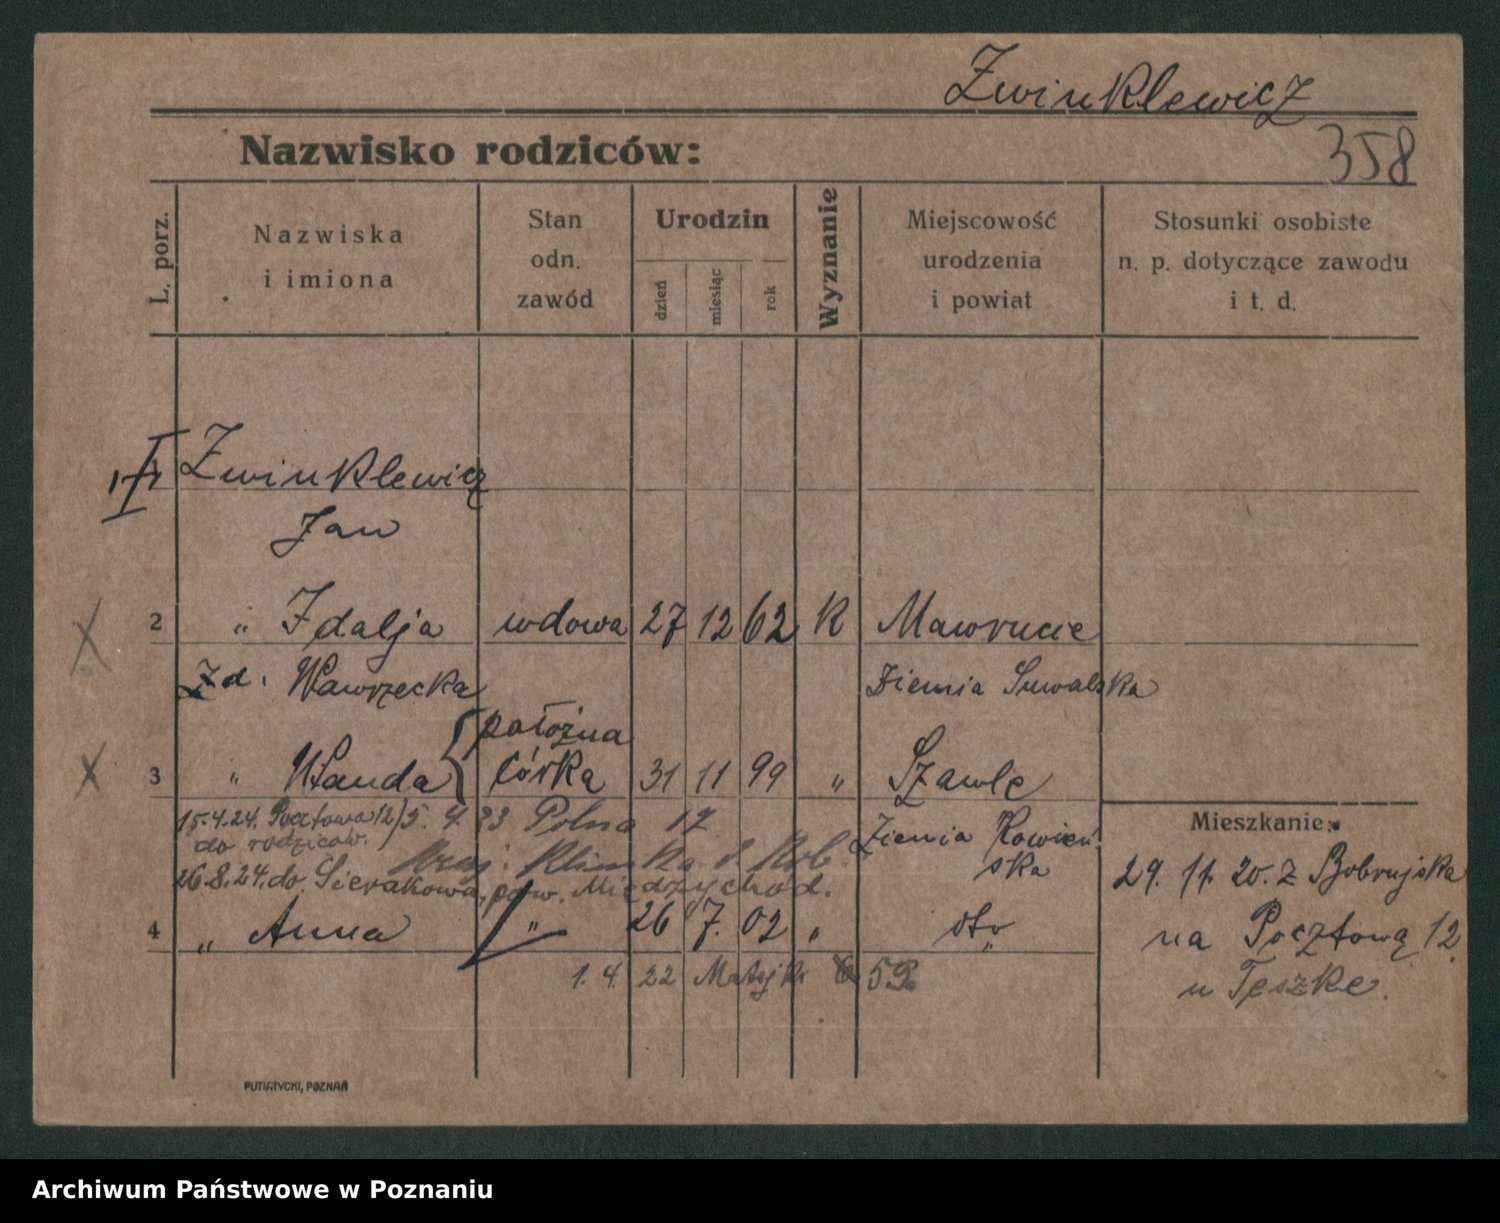 Zwinklewicz
Nazwisko rodziców:
358
L. porz.
Nazwiska
i imiona
Stan
odn.
zawód
Urodzin
dzień
miesiąc
rok
Wyznanie
Miejscowość
urodzenia
i powiat
Stosunki osobiste
n. p. dotyczące zawodu
i t. d.
1 Zwinklewicz
Jan
2 " Idalja wdowa 27 12 62 K Mawrucie
zd. Wawrzecka Ziemia Suwalska
położna
3 " Wanda córka 31 11 99 " Szawle
15.4.24. Pocztowa 12) 5. 4. 23 Polna 17 Ziemia Kowień
do rodziców. ska
26.8.24. do Sierakowa, pow. Międzychód.
4 " Anna " 26 7. 02 " dto
1. 4. 22 Matejki 52
Mieszkanie:
29. 11. 20. z Bobrujska
na Pocztową 12.
u Teszke.
PUTIATYCKI, POZNAŃ
Archiwum Państwowe w Poznaniu